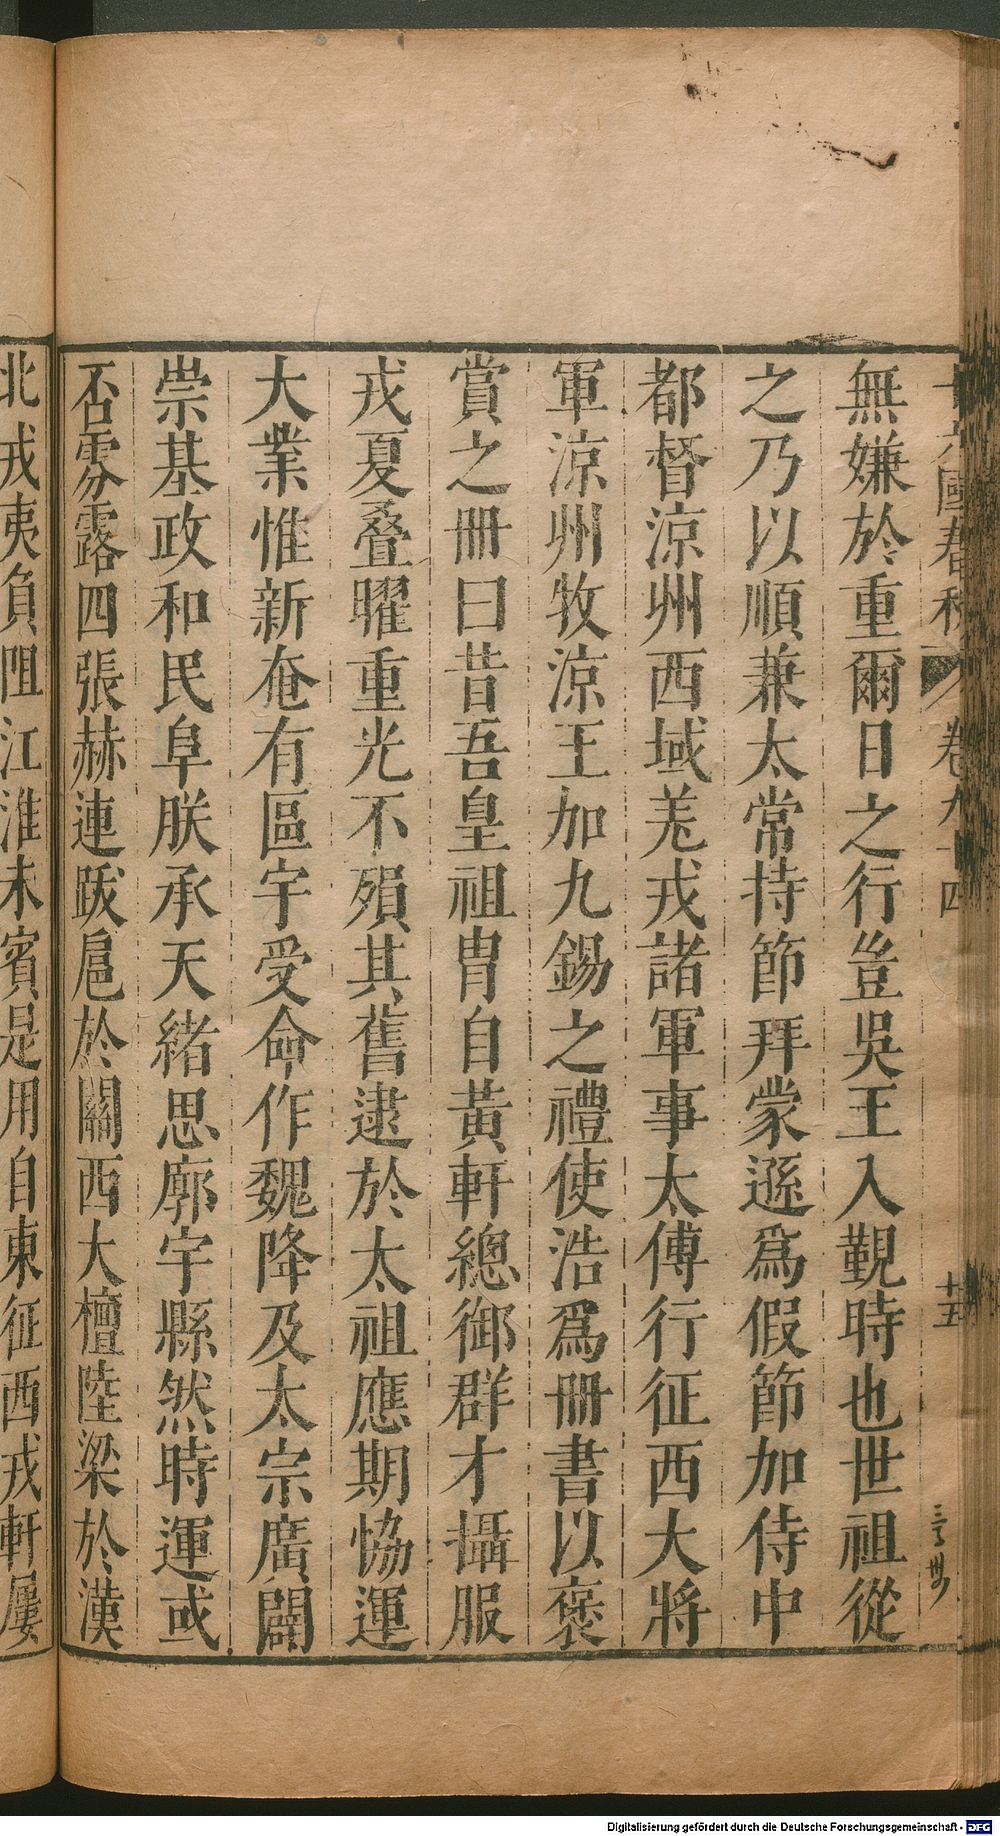 無嫌於重爾日之行豈吳王入覲時也世祖從
之乃以順兼太常持節拜蒙遜爲假節加侍中
都督涼州西域羗戎諸軍事太傅行征西大將
軍涼州牧涼王加九錫之禮使浩爲冊書以褒
賞之冊曰昔吾皇祖胄自黃軒總御群才攝服
戎夏疊曜重光不殞其舊逮於太祖應期協運
大業惟新奄有區宇受命作魏降及太宗廣闢
崇基政和民阜朕承天緒思廓宇縣然時運或
否雰露四張赫連跋扈於關西大檀陸梁於漠
北戎夷負阻江淮未賓是用自東征西戎軒屢
國春秋 卷九十四
十五
Digitalisierung gefördert durch die Deutsche Forschungsgemeinschaft - DFG